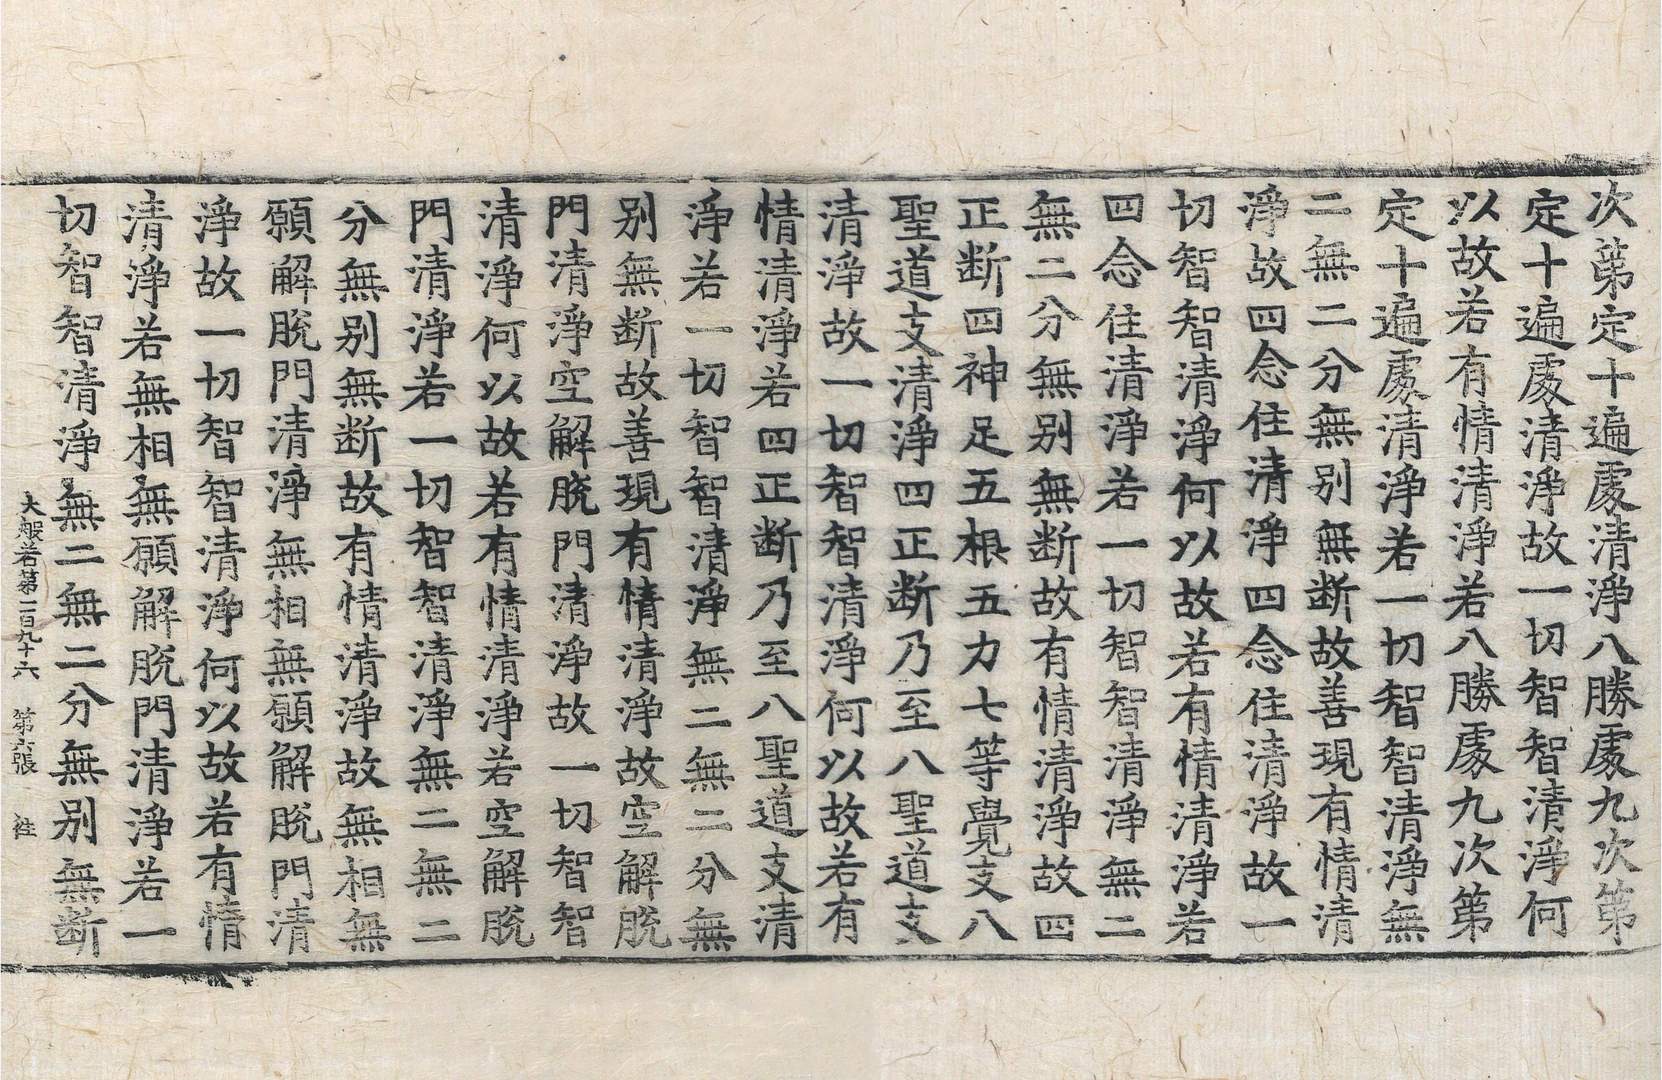 次第定十遍處清淨八勝處九次第
定十遍處清淨故一切智智清淨何
以故若有情清淨若八勝處九次第
定十遍處清淨若一切智智清淨無
二無二分無别無断故善現有情清
淨故四念住清淨四念住清淨故一
切智智清淨何以故若有情清淨若
四念住清淨若一切智智清淨無二
無二分無别無断故有情清淨故四
正断四神足五根五力七等覺支八
聖道支清淨四正断乃至八聖道支
清淨故一切智智清淨何以故若有
情清淨若四正断乃至八聖道支清
淨若一切智智清淨無二無二分無
别無断故善現有情清淨故空解脫
門清淨空解脫門清淨故一切智智
清淨何以故若有情清淨若空解脫
門清淨若一切智智清淨無二無二
分無别無断故有情清淨故無相無
願解脫門清淨無相無願解脫門清
淨故一切智智清淨何以故若有情
清淨若無相無願解脫門清淨若一
切智智清淨無二無二分無别無断
大般若第一百九十六 第六張 往